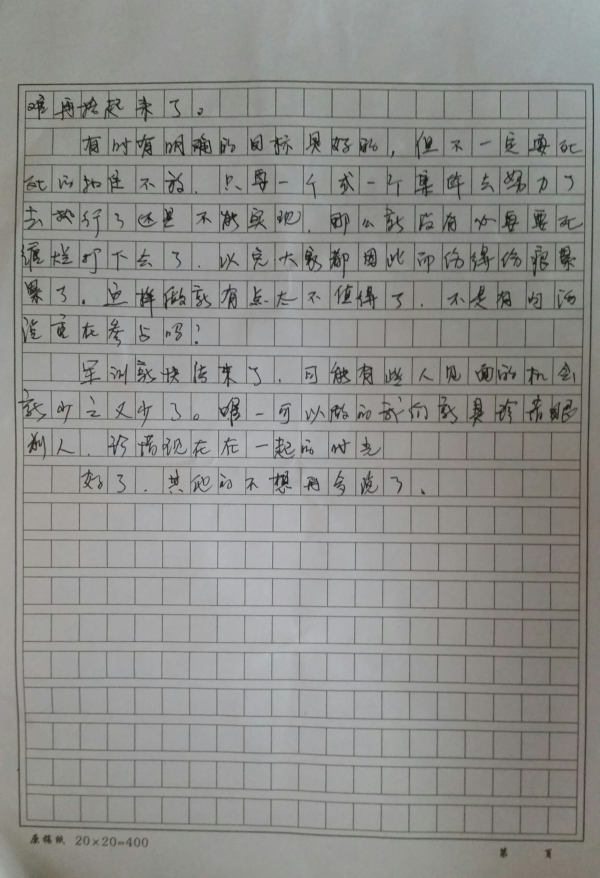 难再拾起来了。
有时有明确的目标是好的，但不一定要死
死的抓住不放．只要一个或一个集阵去努力了
去执行了还是不能实现．那么就没有必要要死
缠烂打下去了．以完大家都因此而伤得伤痕累
累了。这样做就有点太不值得了．不是有句话
说重在参与吗？
军训就快结束了．可能有些人见面的机会
就少之又少了。唯一可以做的我们就是珍惜眼
别人．珍惜现在在一起的时光
好了．其他的不想再多说了．
原稿纸 20×20=400
第 页